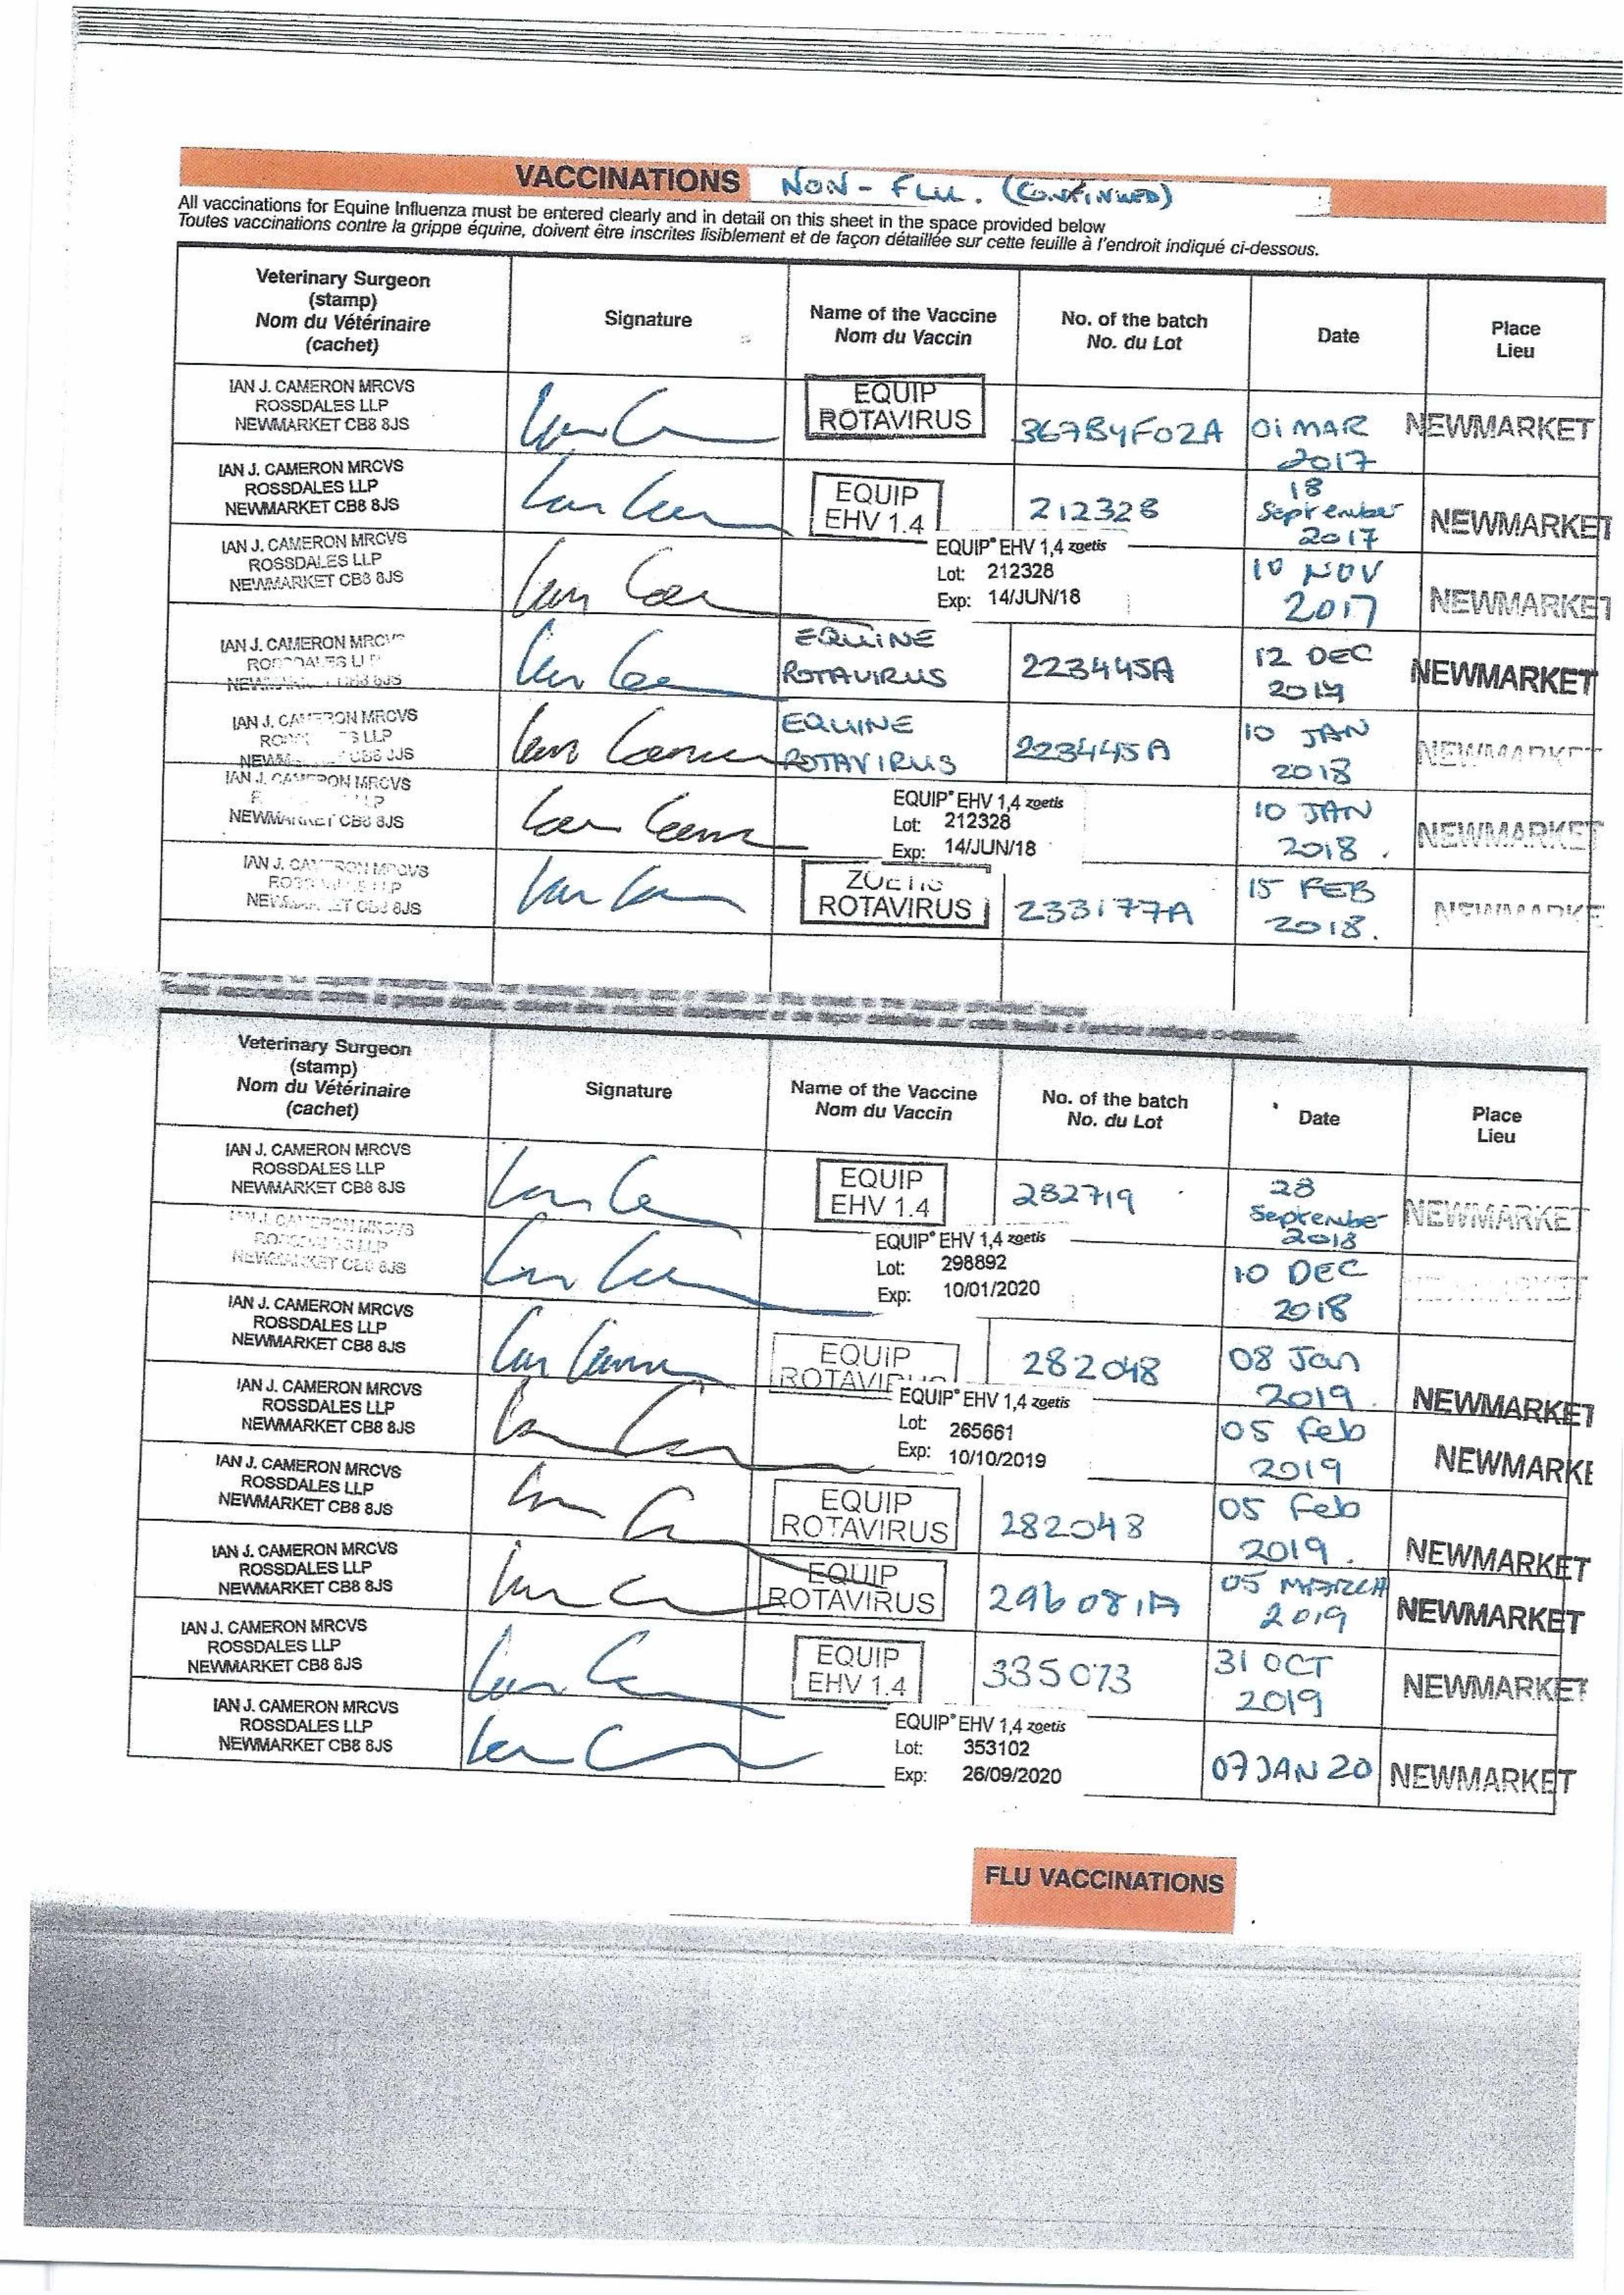 VACCINATIONS NON - FLU. (CONTINUED)
All vaccinations for Equine Influenza must be entered clearly and in detail on this sheet in the space provided below
Toutes vaccinations contre la grippe équine, doivent être inscrites lisiblement et de façon détaillée sur cette feuille à l'endroit indiqué ci-dessous.
Veterinary Surgeon
(stamp)
Nom du Vétérinaire
(cachet)
Signature
Name of the Vaccine
Nom du Vaccin
No. of the batch
No. du Lot
Date
Place
Lieu
IAN J. CAMERON MRCVS
ROSSDALES LLP
NEWMARKET CB8 8JS
EQUIP
ROTAVIRUS
367B4F02A
01 MAR
2017
NEWMARKET
IAN J. CAMERON MRCVS
ROSSDALES LLP
NEWMARKET CB8 8JS
EQUIP
EHV 1.4
212328
18
September
2017
NEWMARKET
IAN J. CAMERON MRCVS
ROSSDALES LLP
NEWMARKET CB8 8JS
EQUIP® EHV 1,4 zoetis
Lot: 212328
Exp: 14/JUN/18
10 NOV
2017
NEWMARKET
IAN J. CAMERON MRCVS
ROSSDALES LLP
EQUINE
ROTAVIRUS
223445A
12 DEC
NEWMARKET
IAN J. CAMERON MRCVS
EQUINE
ROTAVIRUS
223445A
10 JAN
2018
NEWMARKET
IAN J. CAMERON MRCVS
NEWMARKET CB8 8JS
EQUIP® EHV 1,4 zoetis
Lot: 212328
Exp: 14/JUN/18
10 JAN
2018.
NEWMARKET
IAN J. CAMERON MRCVS
ZOETIS
ROTAVIRUS
233177A
15 FEB
2018.
NEWMARKE
Toutes vaccinations contre la grippe équine, doivent être inscrites lisiblement et de façon détaillée sur cette feuille à l'endroit indiqué ci-dessous.
Veterinary Surgeon
(stamp)
Nom du Vétérinaire
(cachet)
Signature
Name of the Vaccine
Nom du Vaccin
No. of the batch
No. du Lot
Date
Place
Lieu
IAN J. CAMERON MRCVS
ROSSDALES LLP
NEWMARKET CB8 8JS
EQUIP
EHV 1.4
282719
28
September
2018
NEWMARKET
IAN J. CAMERON MRCVS
ROSSDALES LLP
NEWMARKET CB8 8JS
EQUIP® EHV 1,4 zoetis
Lot: 298892
Exp: 10/01/2020
10 DEC
2018
IAN J. CAMERON MRCVS
ROSSDALES LLP
NEWMARKET CB8 8JS
EQUIP
ROTAVIRUS
282048
08 Jan
2019.
NEWMARKET
IAN J. CAMERON MRCVS
ROSSDALES LLP
NEWMARKET CB8 8JS
EQUIP® EHV 1,4 zoetis
Lot: 265661
Exp: 10/10/2019
05 Feb
2019
NEWMARKE
IAN J. CAMERON MRCVS
ROSSDALES LLP
NEWMARKET CB8 8JS
EQUIP
ROTAVIRUS
282048
05 Feb
2019.
NEWMARKET
IAN J. CAMERON MRCVS
ROSSDALES LLP
NEWMARKET CB8 8JS
EQUIP
ROTAVIRUS
296081A
05 MARCH
2019
NEWMARKET
IAN J. CAMERON MRCVS
ROSSDALES LLP
NEWMARKET CB8 8JS
EQUIP
EHV 1.4
335073
31 OCT
2019
NEWMARKET
IAN J. CAMERON MRCVS
ROSSDALES LLP
NEWMARKET CB8 8JS
EQUIP® EHV 1,4 zoetis
Lot: 353102
Exp: 26/09/2020
07 JAN 20
NEWMARKET
FLU VACCINATIONS